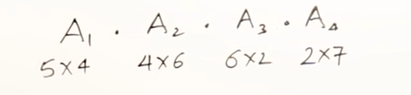 A₁ . A₂ . A₃ . A₄
5x4 4x6 6x2 2x7